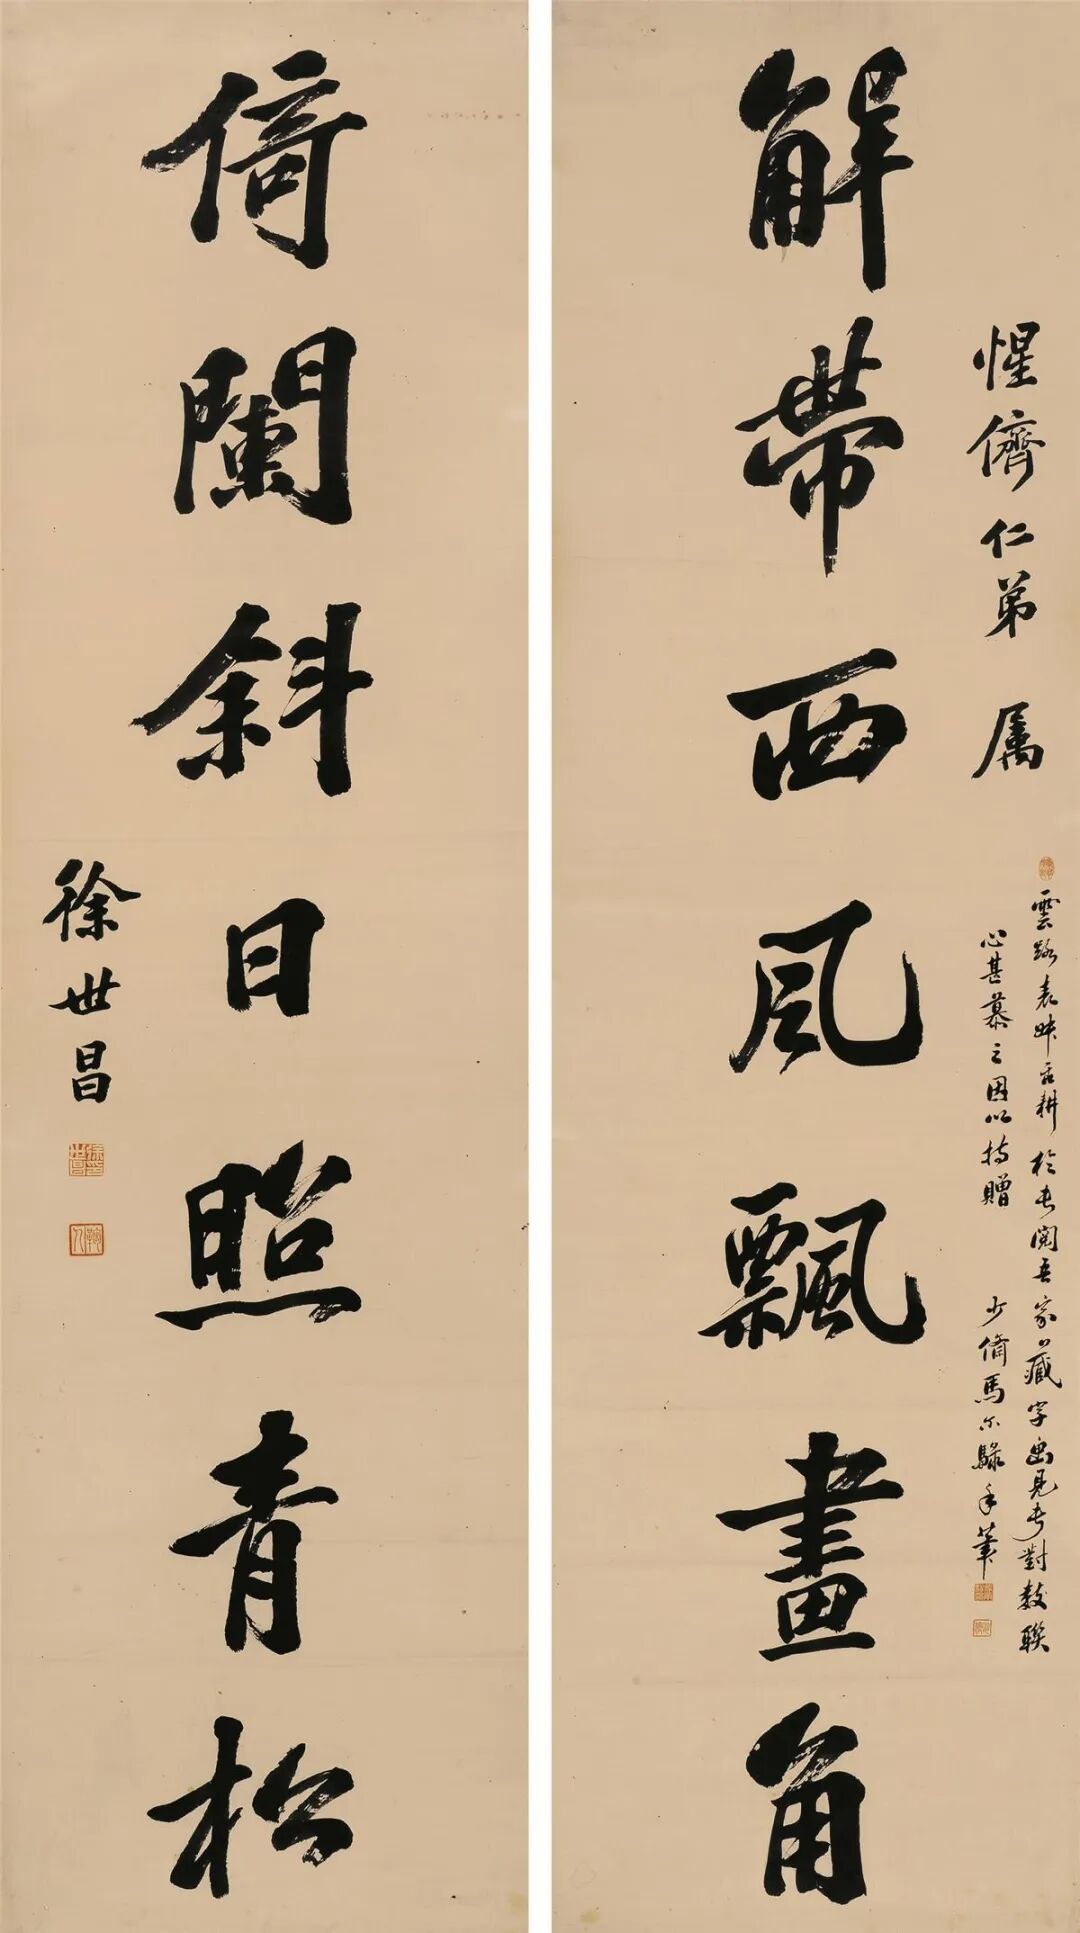 解帶西風飄畫角
惺儕仁弟 属
雲路表妹舌耕於吉閱吾家藏字画見吉對数聯
心甚慕之因以持贈 少脩馬尔騄手筆
倚闌斜日照青松
徐世昌